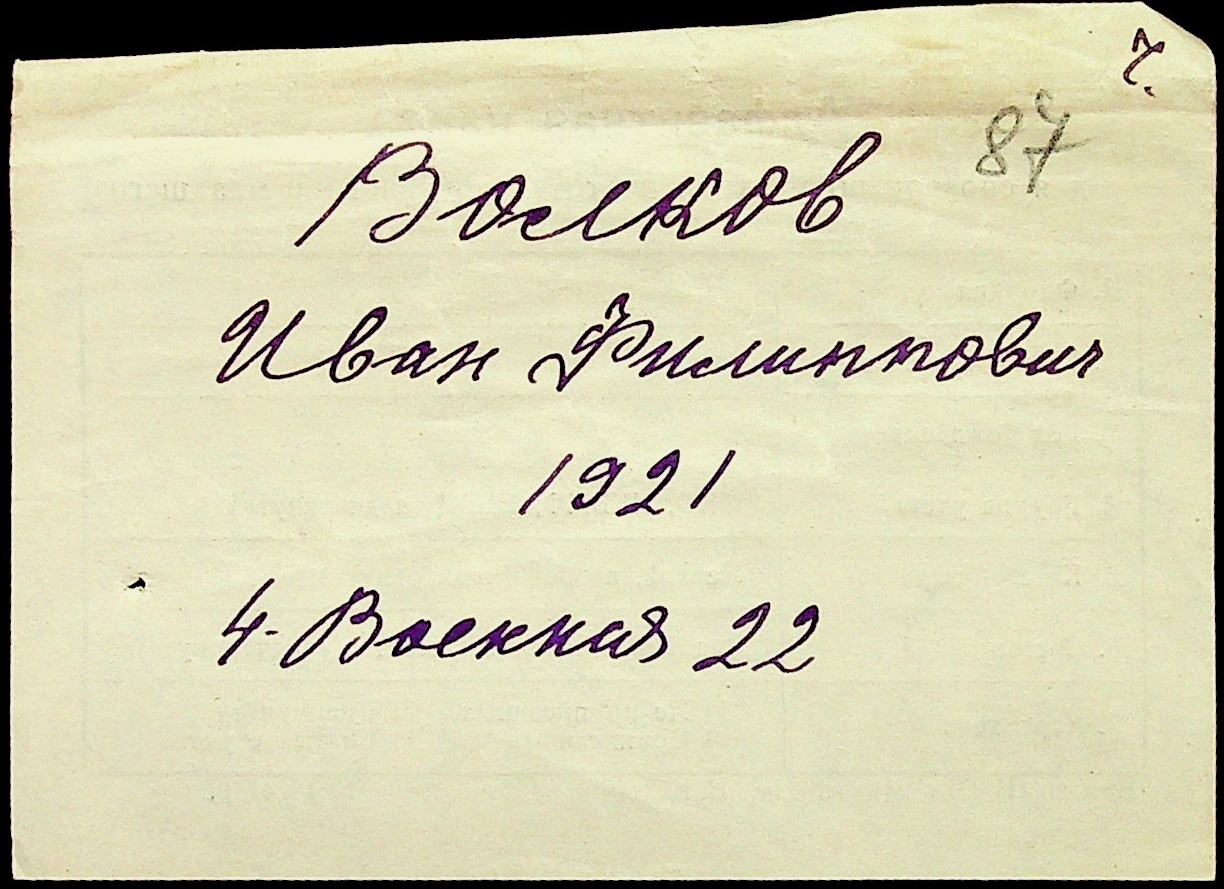 87
Волков
Иван Филиппович
1921
4-Военная 22